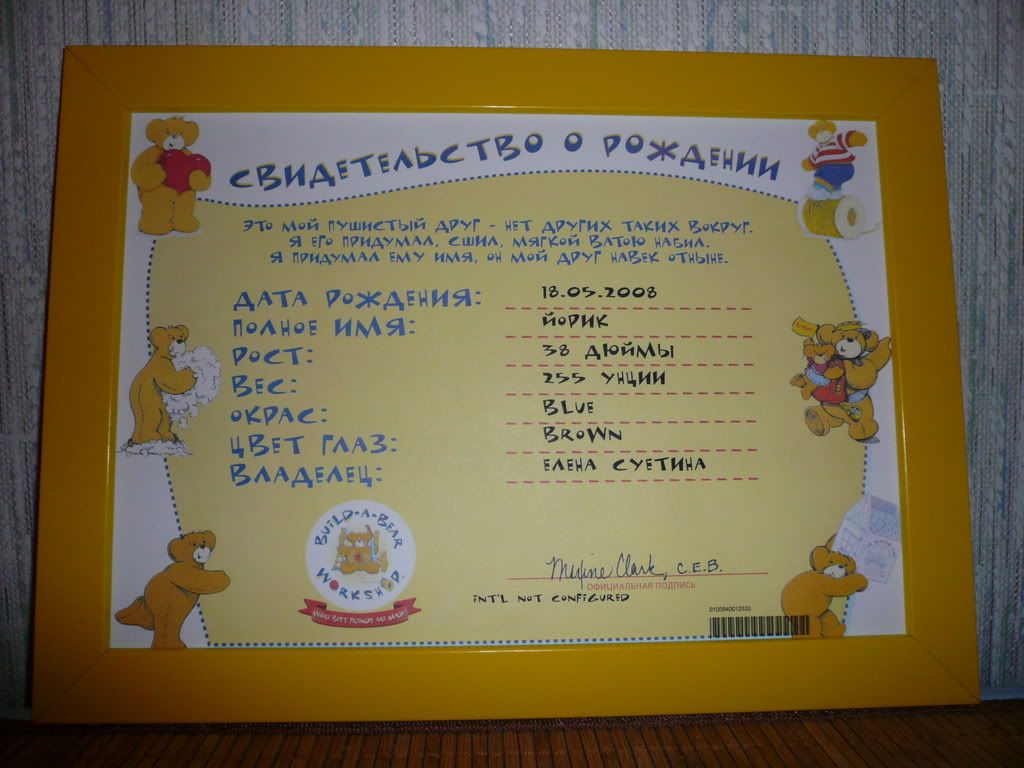 СВИДЕТЕЛЬСТВО О РОЖДЕНИИ
ЭТО МОЙ ПУШИСТЫЙ ДРУГ - НЕТ ДРУГИХ ТАКИХ ВОКРУГ.
Я ЕГО ПРИДУМАЛ, СШИЛ, МЯГКОЙ ВАТОЮ НАБИЛ.
Я ПРИДУМАЛ ЕМУ ИМЯ, ОН МОЙ ДРУГ НАВЕК ОТНЫНЕ.
ДАТА РОЖДЕНИЯ: 18.05.2008
ПОЛНОЕ ИМЯ: ЙОРИК
РОСТ: 38 ДЮЙМЫ
ВЕС: 255 УНЦИИ
ОКРАС: BLUE
ЦВЕТ ГЛАЗ: BROWN
ВЛАДЕЛЕЦ: ЕЛЕНА СУЕТИНА
BUILD-A-BEAR
WORKSHOP
WHERE BEST FRIENDS ARE MADE
Maxine Clark, C.E.B.
ОФИЦИАЛЬНАЯ ПОДПИСЬ
INT'L NOT CONFIGURED
0100940012535